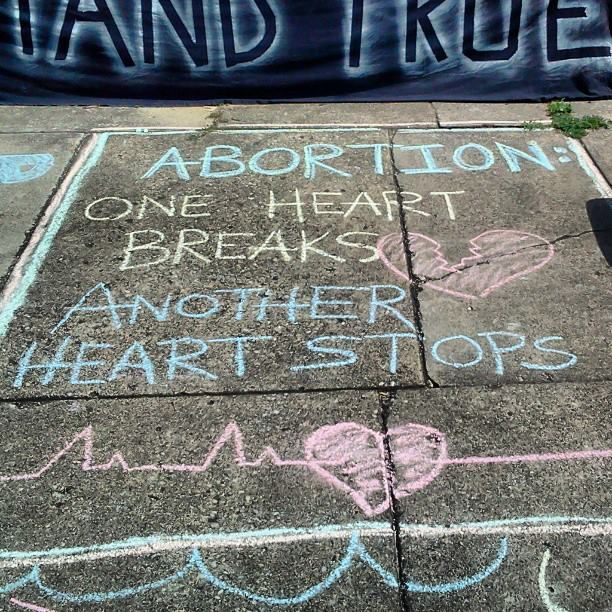 TAND TRUE
ABORTION:
ONE HEART
BREAKS
ANOTHER
HEART STOPS